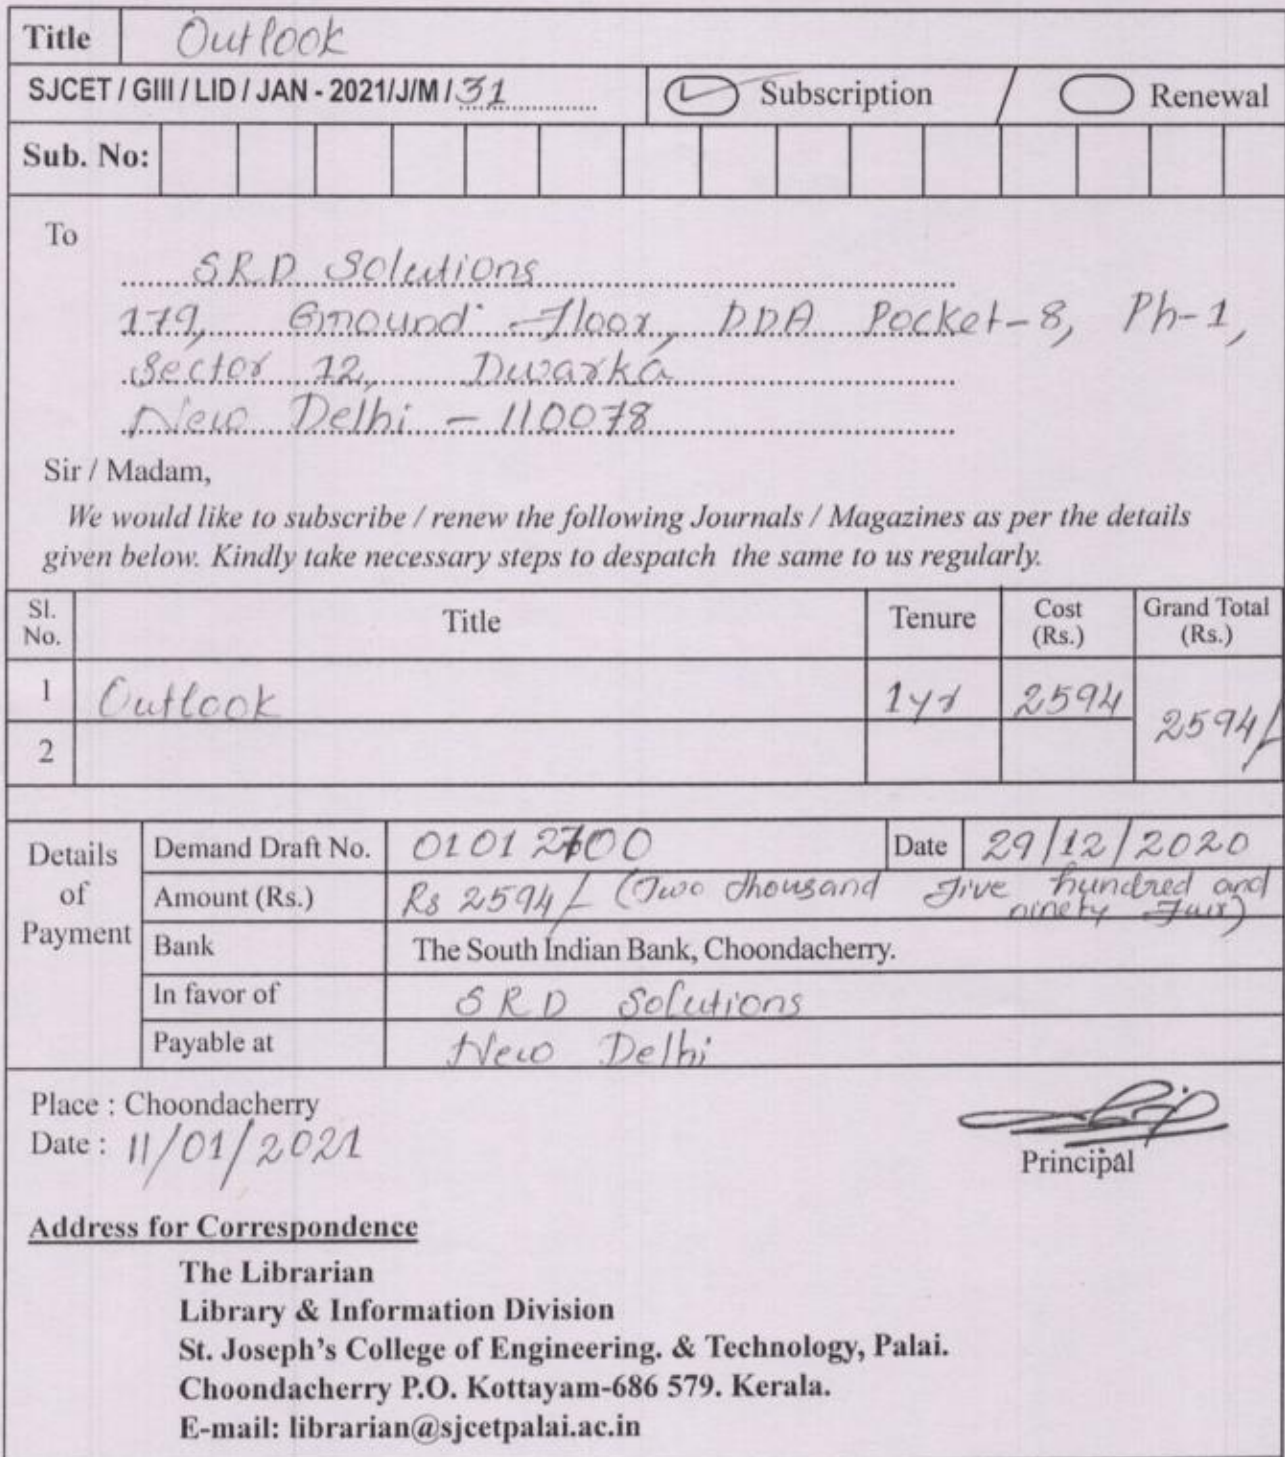 Title Outlook
SJCET / GIII / LID / JAN - 2021/J/M / 31 Subscription / Renewal
Sub. No:
To
S.R.D Solutions
179, Ground Floor, DDA Pocket-8, Ph-1,
Sector 12, Dwarka
New Delhi - 110078
Sir / Madam,
We would like to subscribe / renew the following Journals / Magazines as per the details
given below. Kindly take necessary steps to despatch the same to us regularly.
Sl. No. Title Tenure Cost (Rs.) Grand Total (Rs.)
1 Outlook 1yr 2594 2594/-
2
Details of Payment
Demand Draft No. 01012700 Date 29/12/2020
Amount (Rs.) Rs 2594/- (Two thousand Five hundred and
ninety Four)
Bank The South Indian Bank, Choondacherry.
In favor of SRD Solutions
Payable at New Delhi
Place : Choondacherry
Date : 11/01/2021
Principal
Address for Correspondence
The Librarian
Library & Information Division
St. Joseph's College of Engineering. & Technology, Palai.
Choondacherry P.O. Kottayam-686 579. Kerala.
E-mail: librarian@sjcetpalai.ac.in